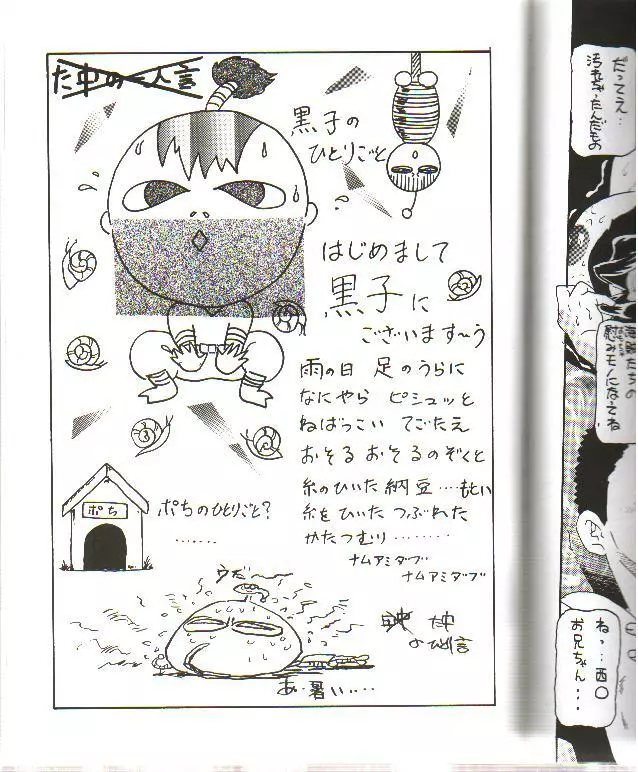 た中の一人言
黒子の
ひとりごと
はじめまして
黒子に
ございます〜う
雨の日 足のうらに
なにやら ピシュッと
ねばっこい てごたえ
おそる おそるのぞくと
糸のひいた納豆……もとい
糸をひいた つぶれた
かたつむり………
ナムアミダブ
ナムアミダブ
ポち
ポちのひとりごと?
……
うだ〜
た中
のひと言
あ、暑い……
だってえ…
汚れちゃったんだもの
慰みモノになってね
ねっ…西〇
お兄ちゃん…